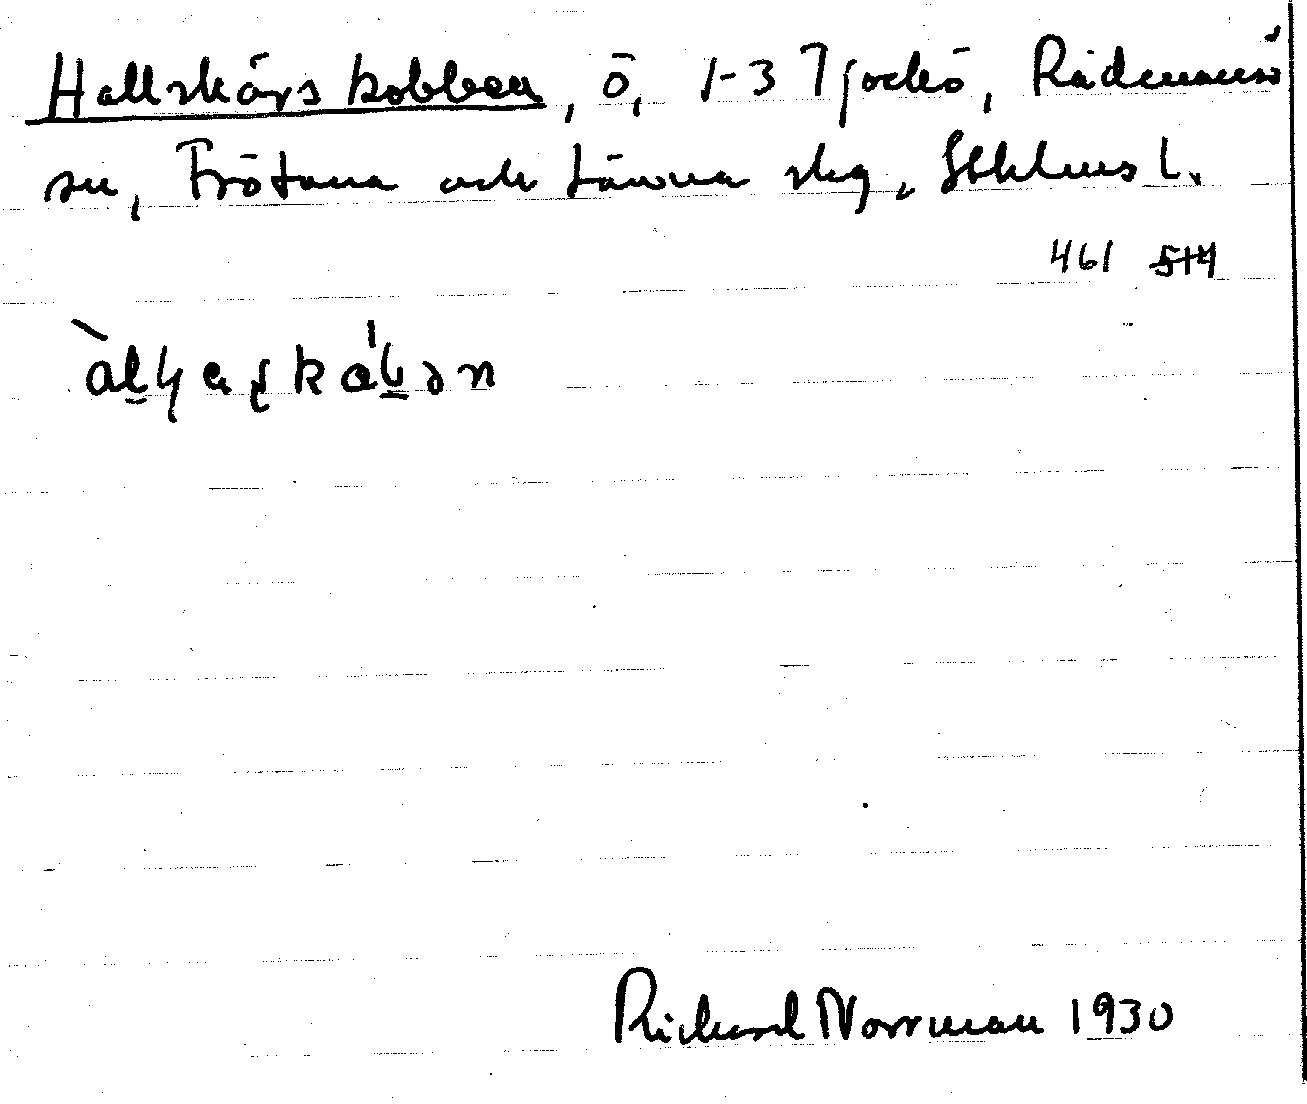 Hallskärs kobben, ö, 1-3 Tjockö, Rådmansö
sn, Frötuna och Länna skg, Sthlms l.
461 514
Richard Norrman 1930